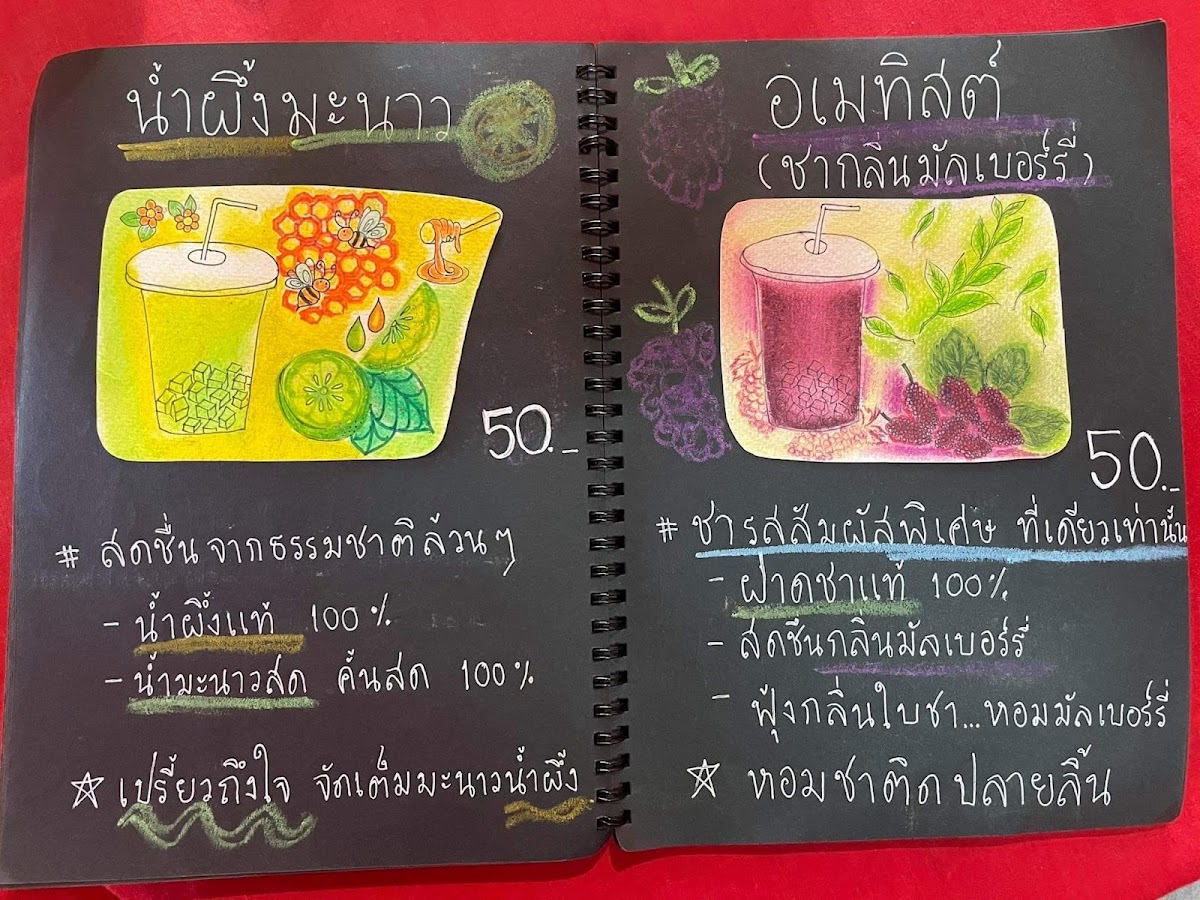 น้ำผึ้งมะนาว
50.-
# สดชื่น จากธรรมชาติล้วนๆ
- น้ำผึ้งแท้ 100%
- น้ำมะนาวสด คั้นสด 100%
☆ เปรี้ยวถึงใจ จัดเต็มมะนาวน้ำผึ้ง
อเมทิสต์
(ชากลิ่นมัลเบอร์รี่)
50.-
# ชารสสัมผัสพิเศษ ที่เดียวเท่านั้น
- ฝาดชาแท้ 100%
- สดชื่นกลิ่นมัลเบอร์รี่
- ฟุ้งกลิ่นใบชา...หอมมัลเบอร์รี่
☆ หอมชาติดปลายลิ้น